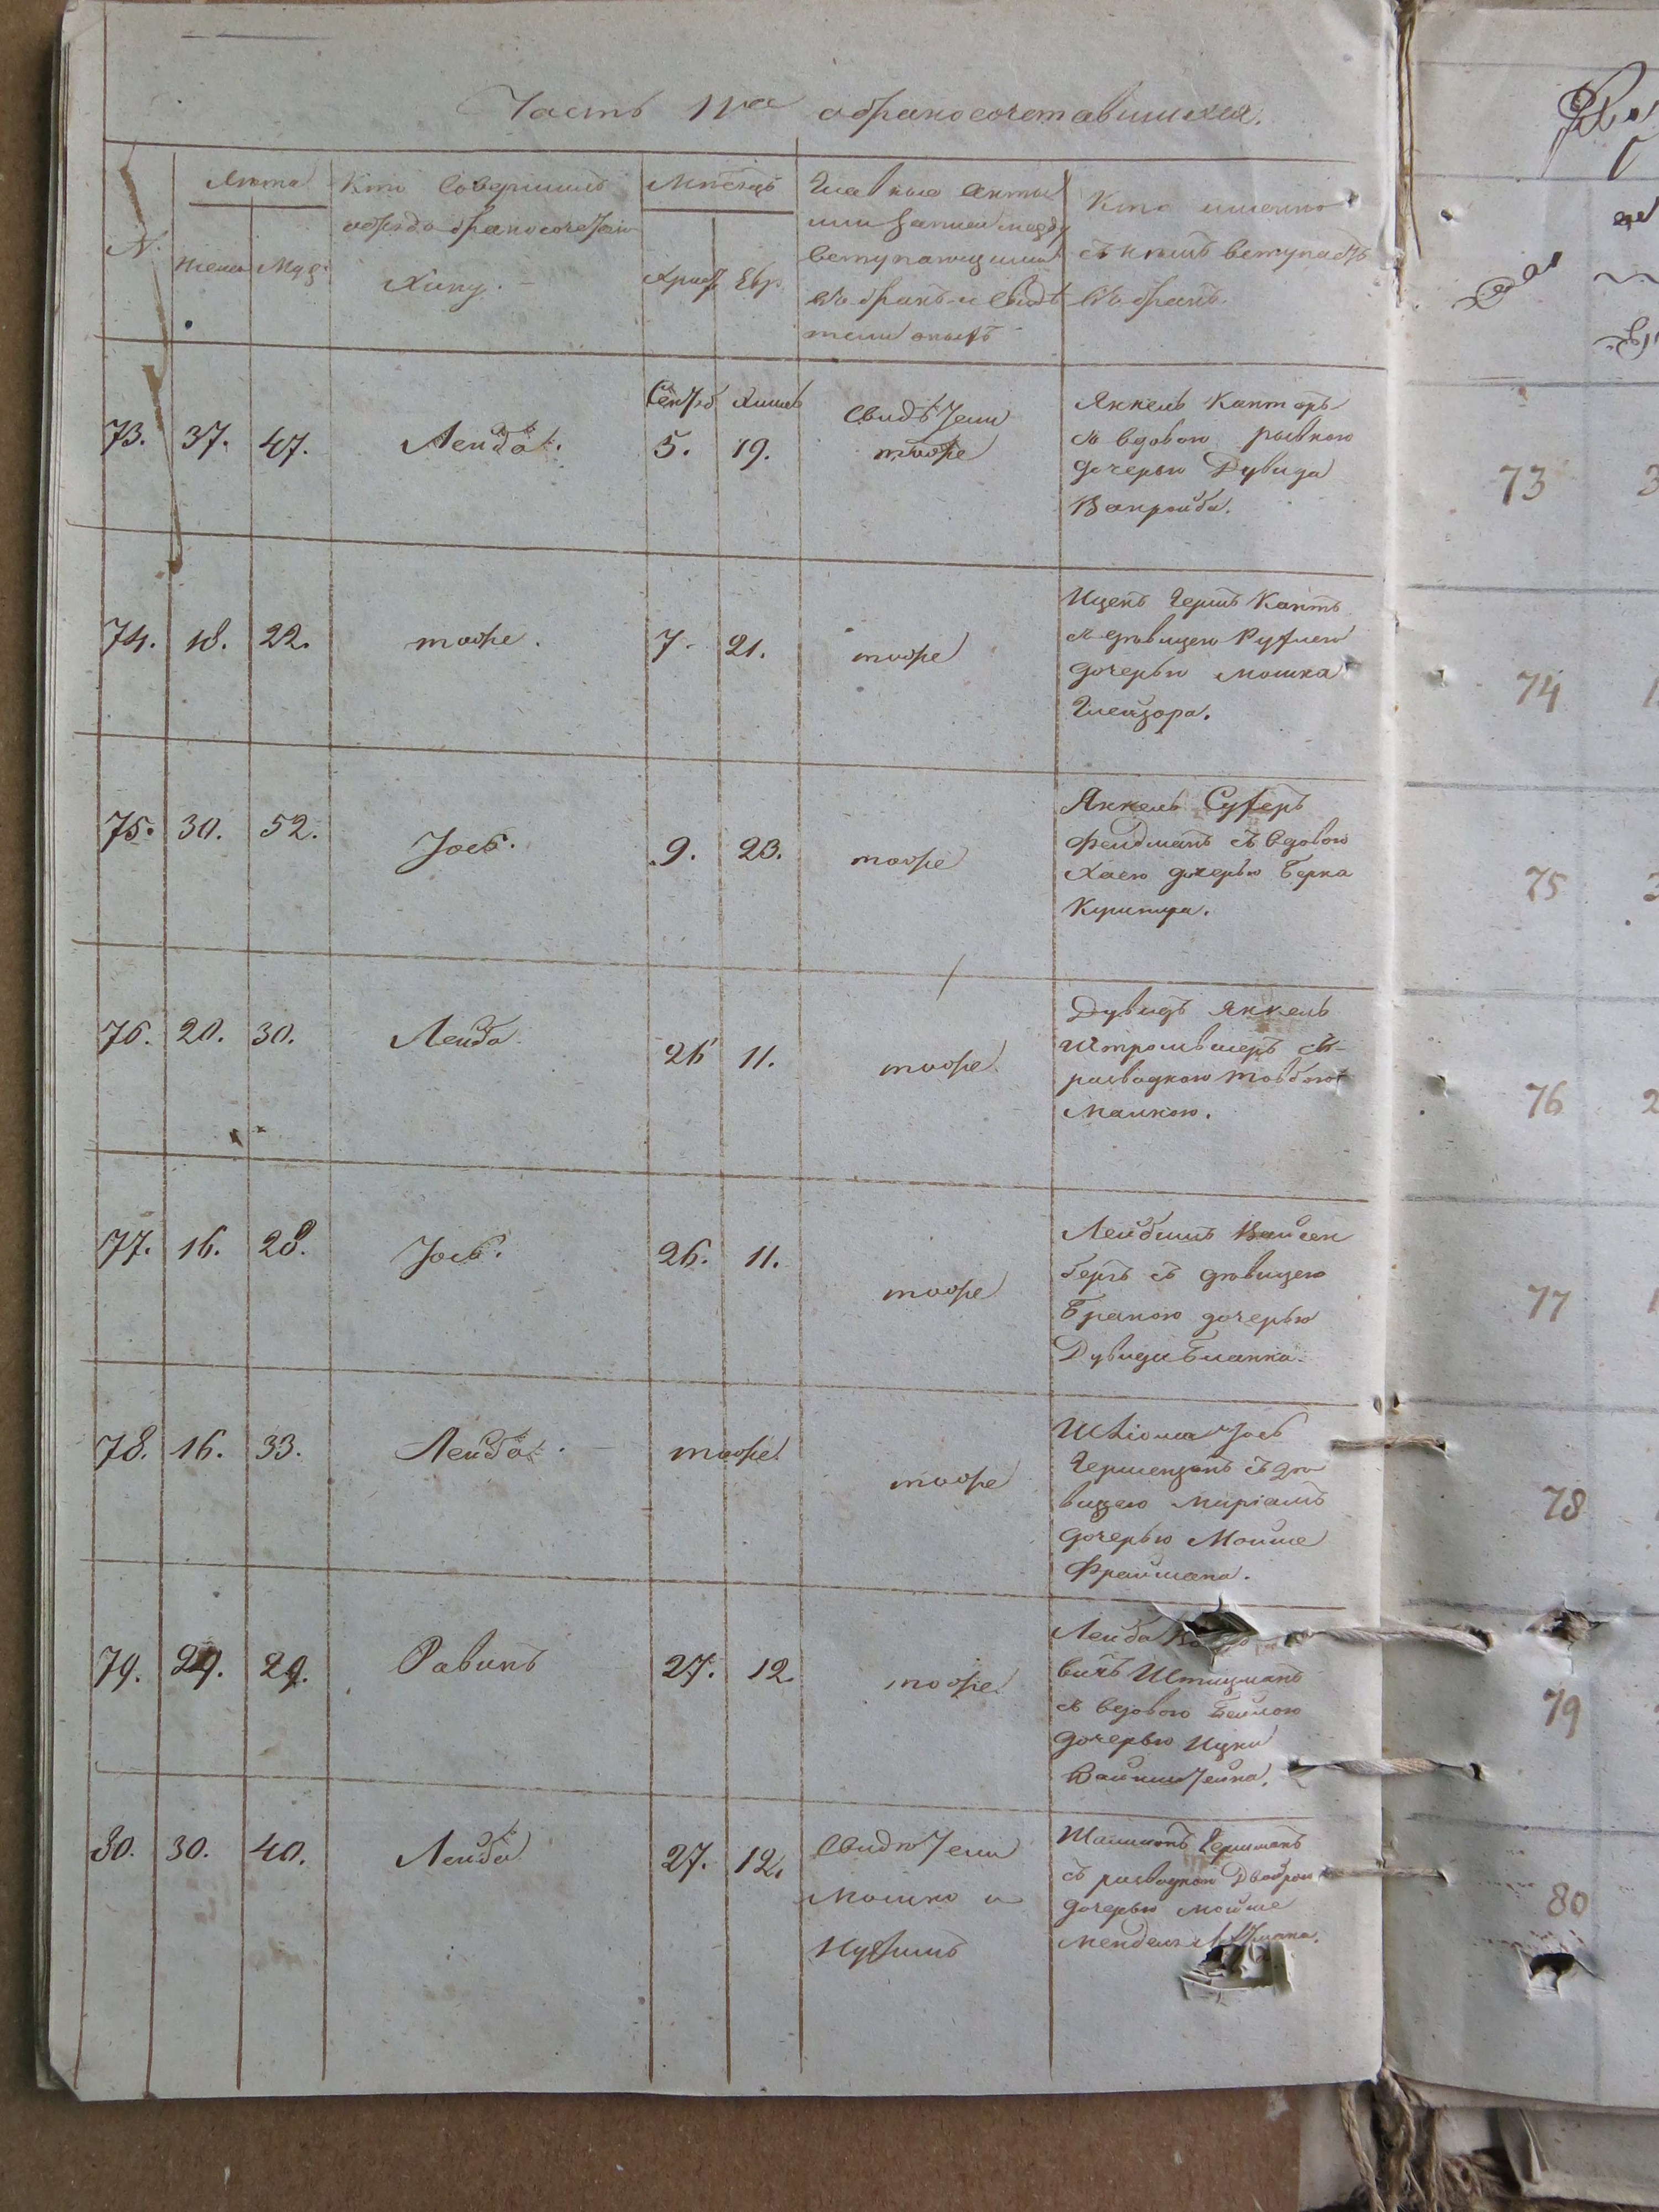 Часть IIая обракосочетавшихся.
№
Лѣта
Жены Муж:
Кто Совершилъ
обрядъ бракосочетанія
Хипу.
Мѣсяцъ
Христ Евр
Главные Акты
или Записи между
вступающими
въ бракъ и Свидѣ
тели оныхъ
Кто именно
съ кѣмъ вступаетъ
въ бракъ.
73. 37. 47. Лейба.
Сентяб
5. 19.
Свидѣтели
тѣже
Яккель Канторъ
съ вдовою Рывкою
дочерью Дувида
74. 18. 22. тоже. 7. 21. тоже
Ицекъ Гершъ Кантъ
съ дѣвицею Рухлею
дочерью Мошка
Глейзора.
75. 30. 52. Іось. 9. 23. тоже
Яккель Суферъ
Фельдманъ съ вдовою
Хаею дочерью Берка
76. 20. 30. Лейба. 26 11. тоже.
Дувидъ Яккель
съ
разводкою
Малкою.
77. 16. 28. Іось. 26. 11. тоже
Лейбишъ Вайсен
бергъ съ дѣвицею
дочерью
Дувида Бланка.
78. 16. 33. Лейба. тоже. тоже
Шліома Іось
съ дѣ
вицею Миріамъ
дочерью Мойше
Фраймана.
79. 29. 29. Равинъ 27. 12. тоже.
Лейба
вичъ
съ вдовою Бейлою
дочерью Ицки
Вайнштейна.
80. 30. 40. Лейба 27. 12.
Свидѣтели
Мошко и
Нухимъ
Гершманъ
съ разводкою Двойрою
дочерью Мойше
Мендель
73
74
75
76
77
78
79
80